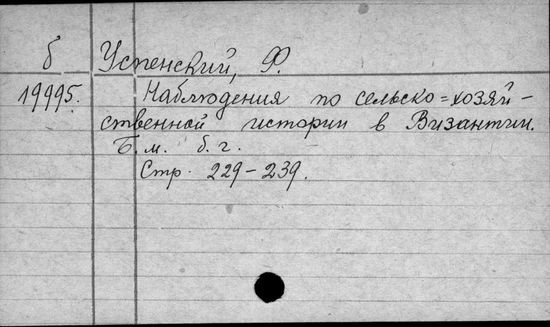 б Успенский, Ф.
19995. Наблюдения по сельско=хозяй-
ственной истории в Византии.
Б.м. б.г.
Стр. 229-239.